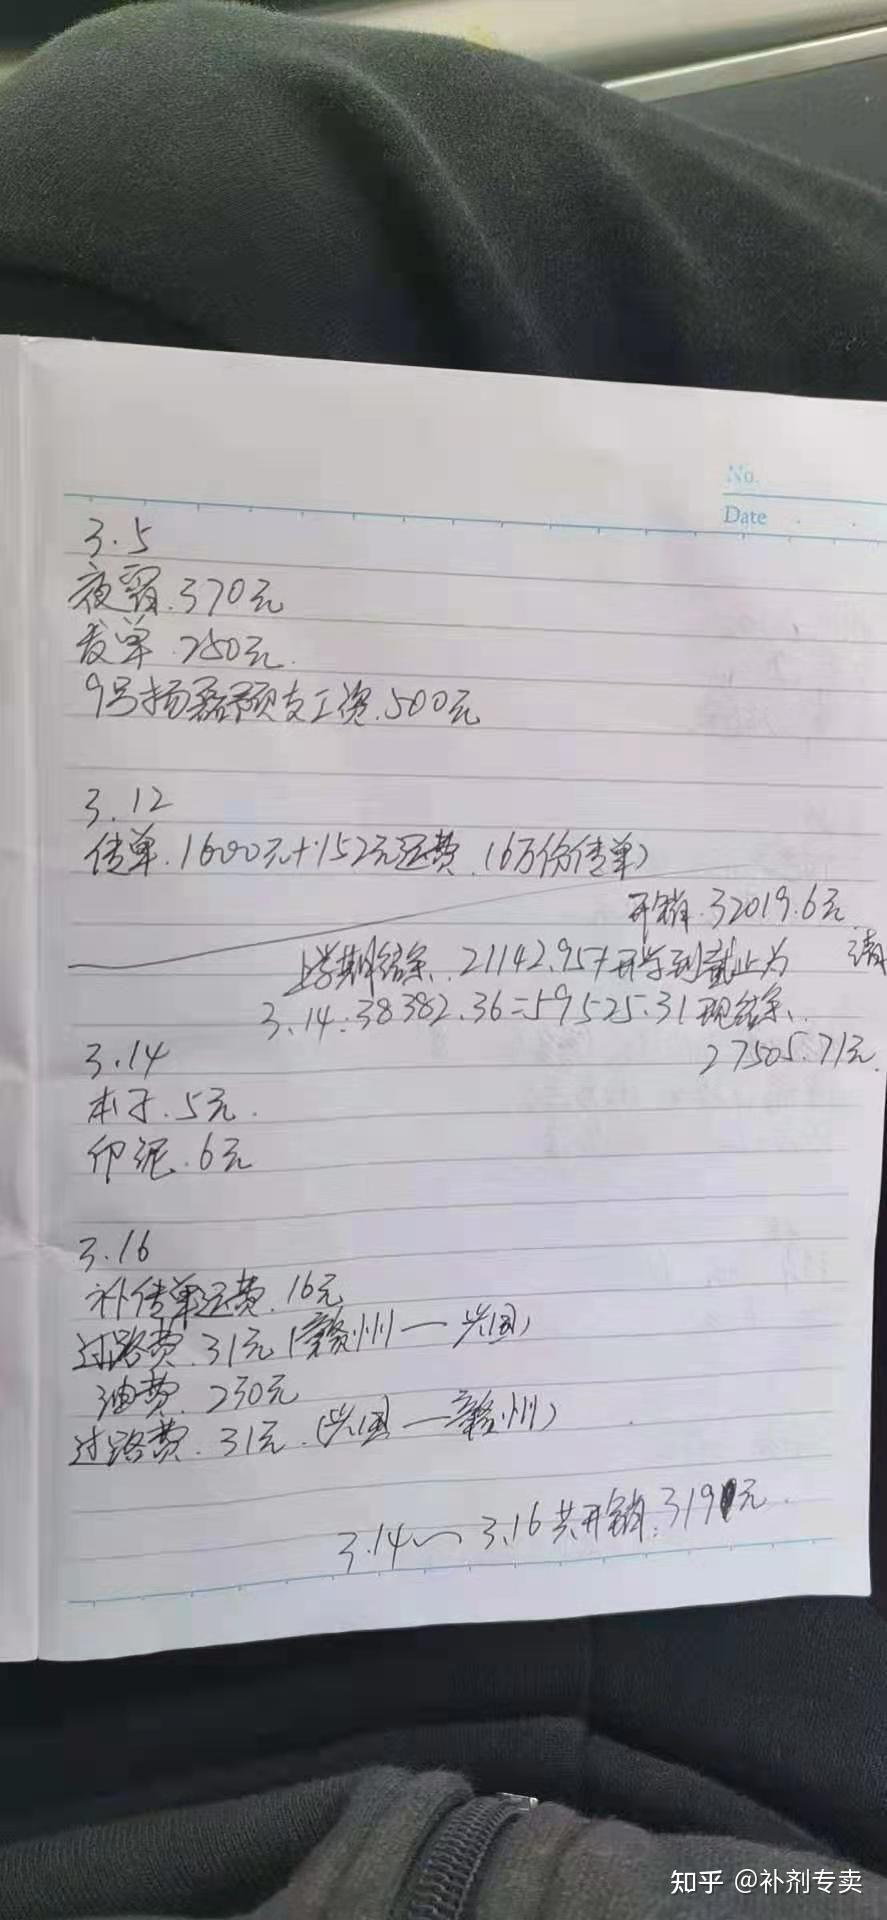 No.
Date
3.5
夜宵.370元
发单.250元.
9号杨磊预支工资.500元
3.12
传单.1600元+152元运费.(6万份传单)
开销.32019.6元
上学期结余、21142.95+开学到截止为 清
3.14:38382.36=59525.31现结余、
27505.71元.
3.14
本子.5元.
印泥.6元
3.16
补传单运费.16元
过路费.31元(赣州—兴国)
油费.230元
过路费.31元.(兴国—赣州)
3.14~3.16共开销:319元.
知乎 @补剂专卖